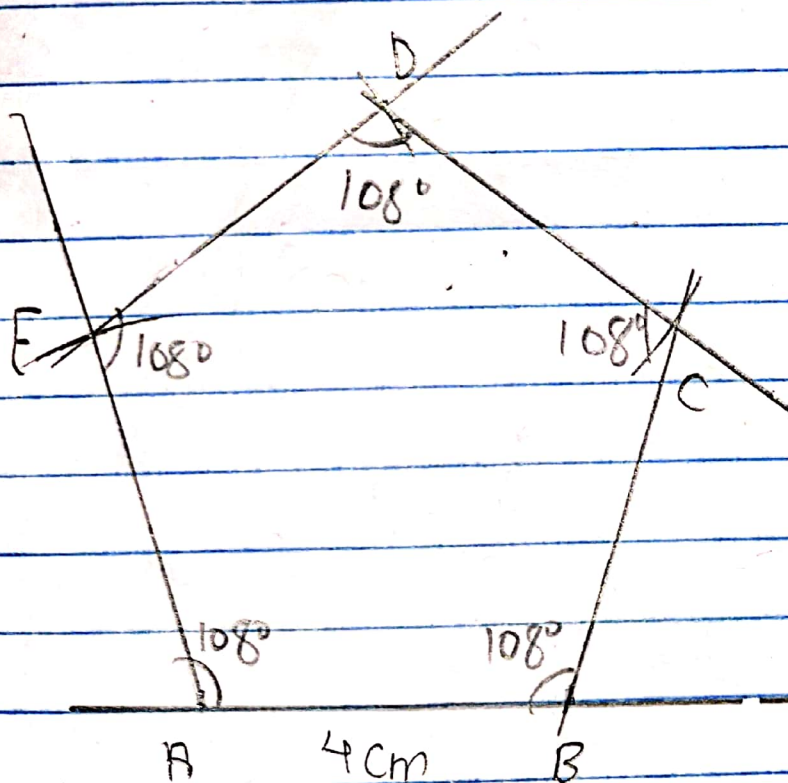 D
108°
E
108°
108°
C
108°
108°
A
4cm
B